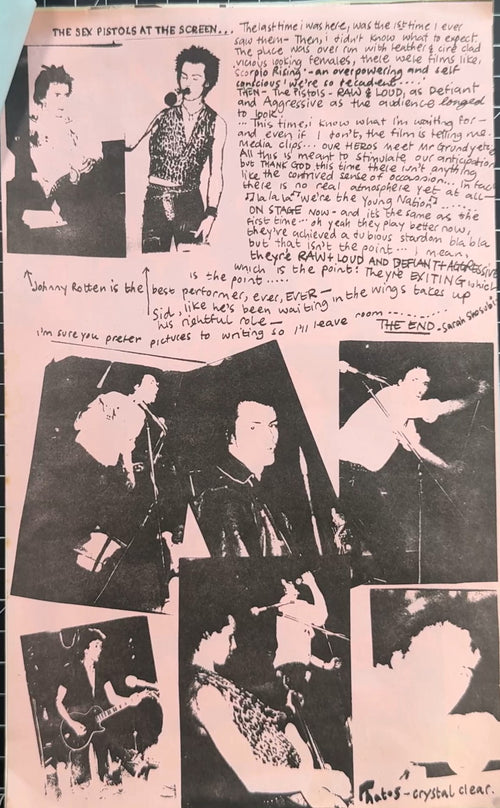 THE SEX PISTOLS AT THE SCREEN...
The last time i was here, was the 1st time I ever
saw them - Then, i didn't know what to expect.
The place was over run with leather & ciré clad
vicious looking females, there were films like,
'Scorpio Rising' - an overpowering and self
conscious 'we're so decadent.....
THEN - The Pistols - RAW & LOUD, as Defiant
and Aggressive as the audience longed
to look.
... This time, i know what I'm waiting for -
and even if I don't, the film is telling me.
Media clips... OUR HEROS meet Mr Grundy etc
All this is meant to stimulate our anticipation
but THANK GOD this time there isn't anything
like the contrived sense of occassion... In fact
there is no real atmosphere yet at all -
♫ la la la ♫ we're the Young Nation ♫ .....
ON STAGE NOW - and it's the same as the
first time - oh yeah they play better now,
they've achieved a dubious stardom bla bla
but that isn't the point.... I mean,
they're RAW + LOUD AND DEFIANT + AGGRESSIVE
which is the point! They're EXITING which
is the point.....
Johnny Rotten is the best performer, ever, EVER -
Sid, like he's been waiting in the wings takes up
his rightful role -
i'm sure you prefer pictures to writing so I'll leave room .........
THE END - Sarah
Photos - crystal clear.